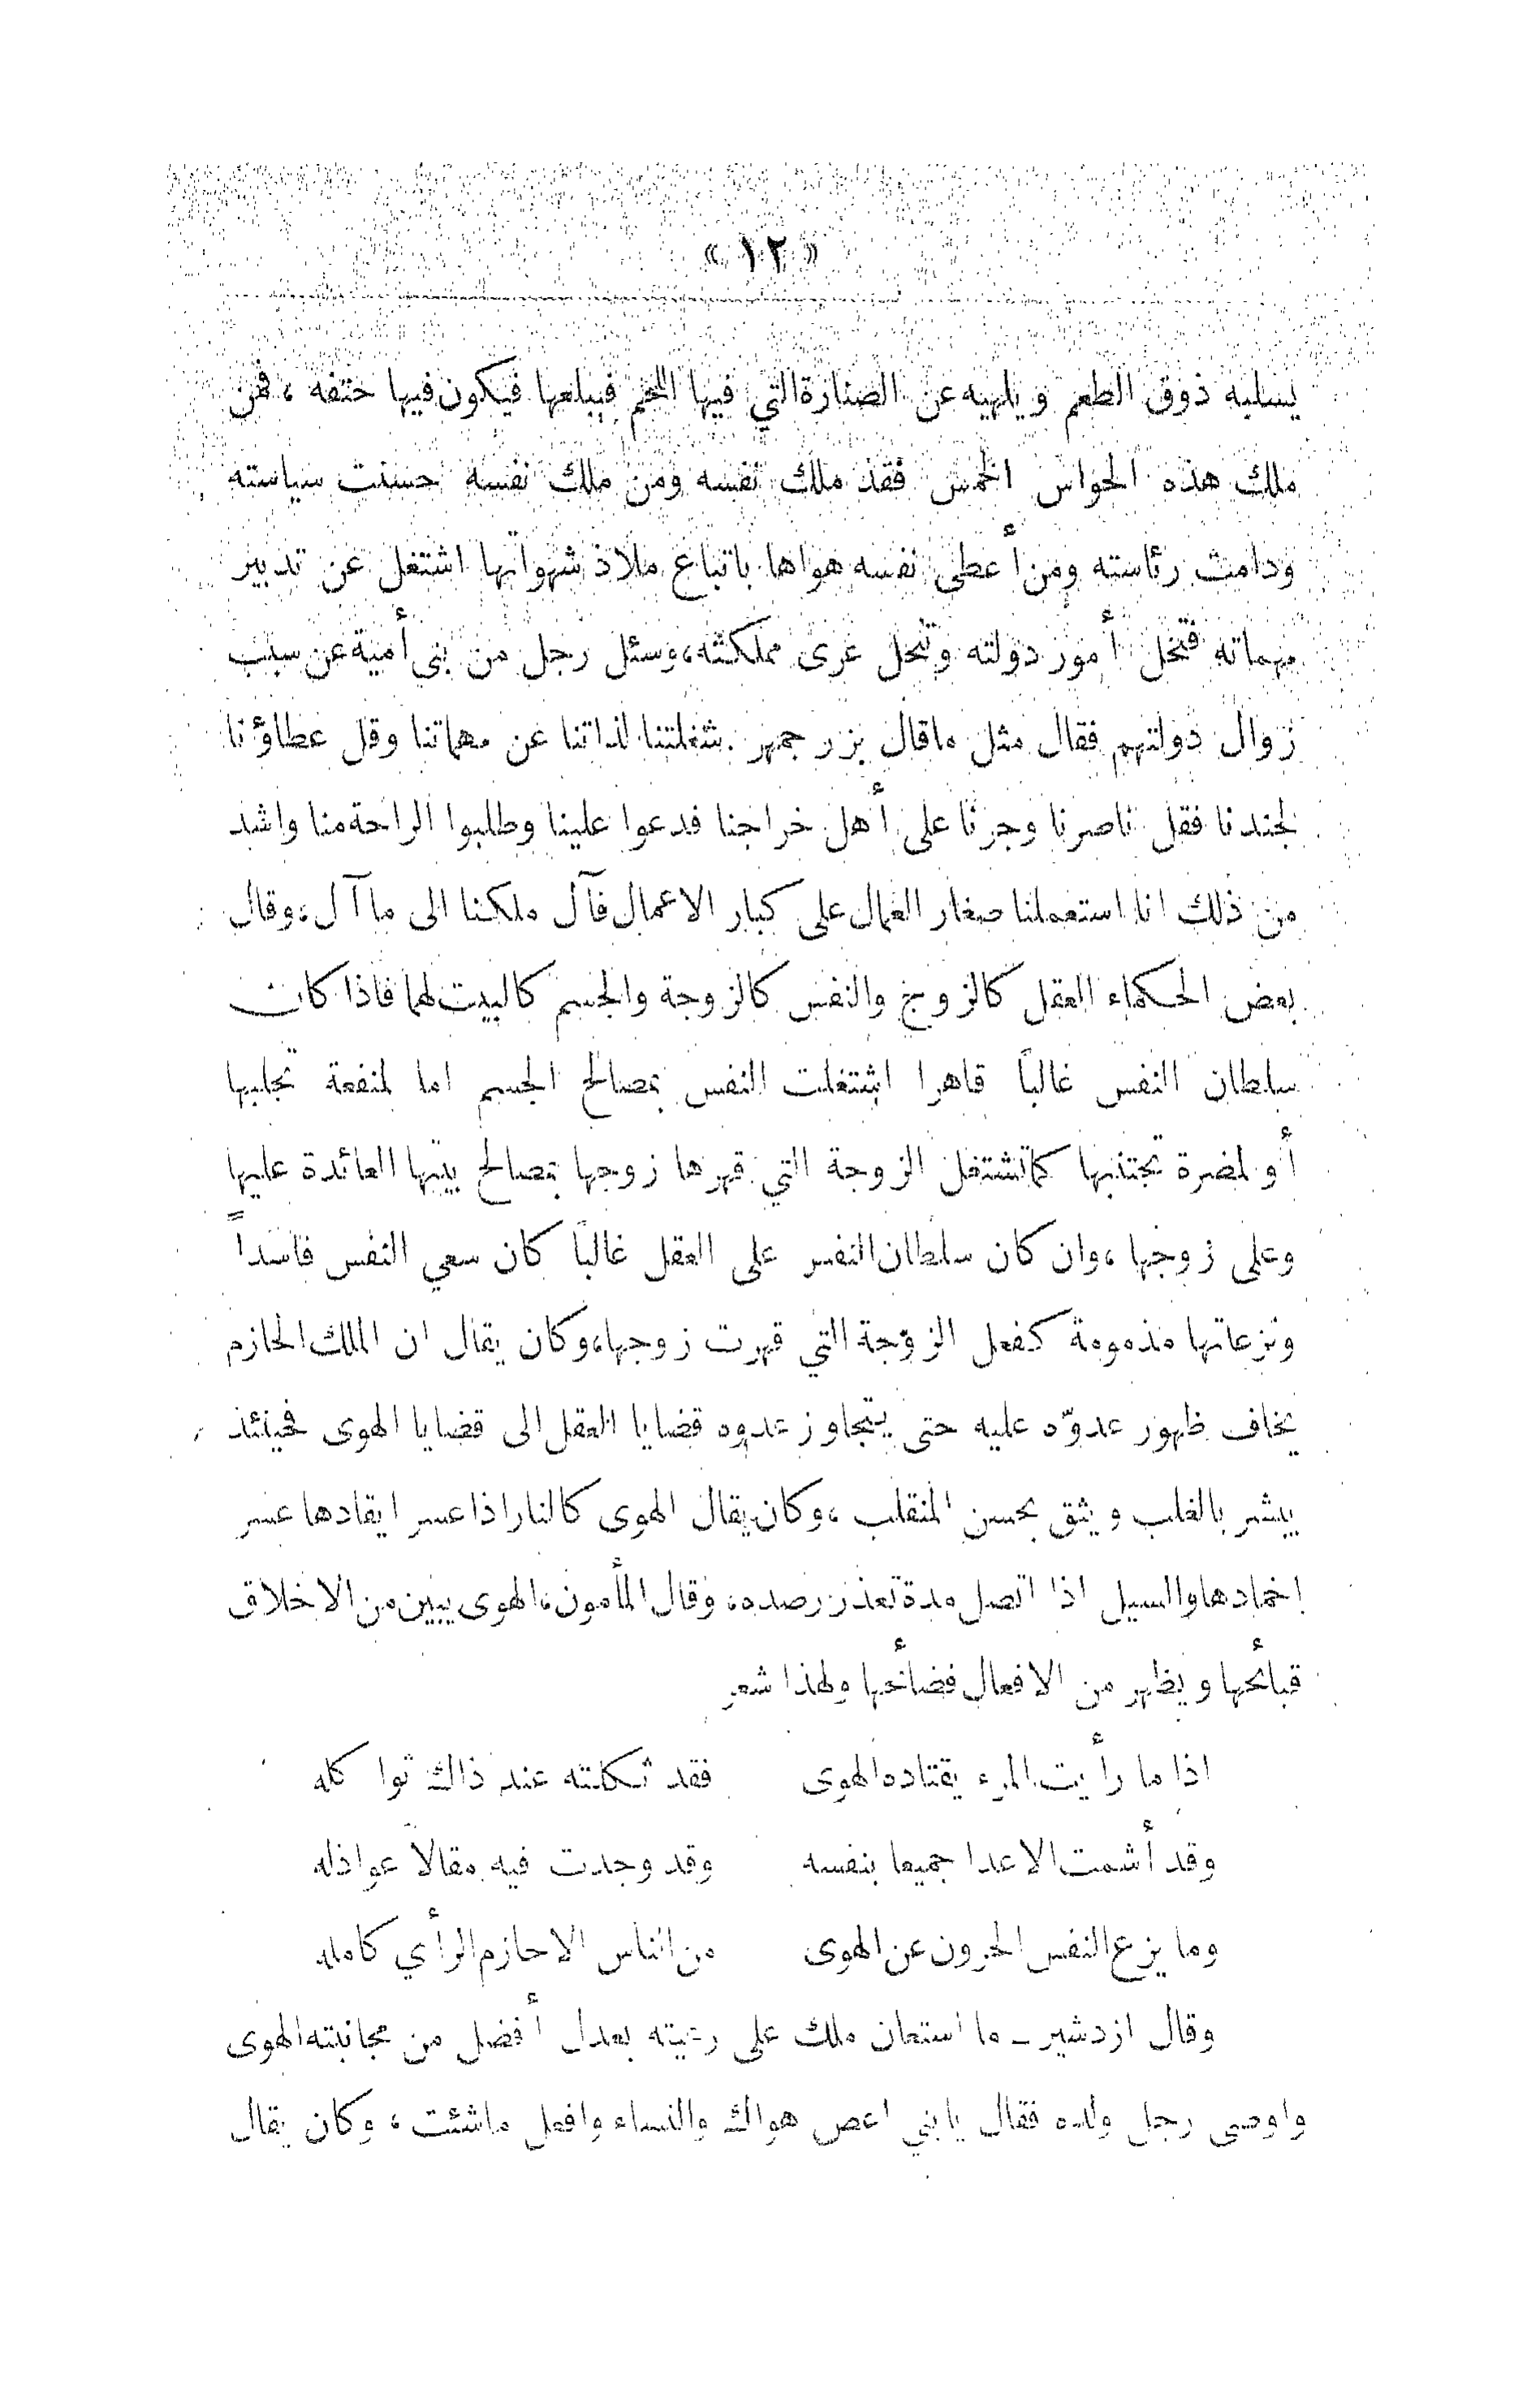 « ١٢ »
يسلبه ذوق الطعم ويلهيه عن الصنارة التي فيها اللحم فيبلعها فيكون فيها حتفه ، فمن
ملك هذه الحواس الخمس فقد ملك نفسه ومن ملك نفسه حسنت سياسته
ودامت رئاسته ومن أعطى نفسه هواها باتباع ملاذ شهواتها اشتغل عن تدبير
مهماته فتخل أمور دولته وتنحل عرى مملكته، وسئل رجل من بني أمية عن سبب
زوال دولتهم فقال مثل ما قال بزر جمهر . شغلتنا لذاتنا عن مهماتنا وقل عطاؤنا
لجندنا فقل ناصرنا وجرنا على أهل خراجنا فدعوا علينا وطلبوا الراحة منا واشد
من ذلك انا استعملنا صغار العمال على كبار الاعمال فآل ملكنا الى ما آل، وقال
بعض الحكماء العقل كالزوج والنفس كالزوجة والجسم كالبيت لهما فاذا كان
سلطان النفس غالباً قاهرا اشتغلت النفس بمصالح الجسم اما لمنفعة تجلبها
أو لمضرة تجتنبها كما تشتغل الزوجة التي قهرها زوجها بمصالح بيتها العائدة عليها
وعلى زوجها ،وان كان سلطان النفس على العقل غالباً كان سعي النفس فاسداً
ونزعاتها مذمومة كفعل الزوجة التي قهرت زوجها،وكان يقال ان الملك الحازم
يخاف ظهور عدوّه عليه حتى يتجاوز عدوه قضايا العقل الى قضايا الهوى فحينئذ
يبشر بالغلب ويثق بحسن المنقلب ،وكان يقال الهوى كالنار اذا عسر ايقادها عسر
اخمادها والسيل اذا اتصل مدة تعذر رصده، وقال المأمون،الهوى يبين من الاخلاق
قبائحها ويظهر من الافعال فضائحها ولهذا شعر
اذا ما رأيت المرء يقتاده الهوى فقد ثكلته عند ذاك ثواكله
وقد أشمت الاعدا جميعا بنفسه وقد وجدت فيه مقالاً عواذله
وما يزع النفس الحرون عن الهوى من الناس الا حازم الرأي كامله
وقال ازدشير ـ ما استعان ملك على رعيته بعدل أفضل من مجانبته الهوى
واوصى رجل ولده فقال يا بني اعص هواك والنساء وافعل ما شئت ، وكان يقال